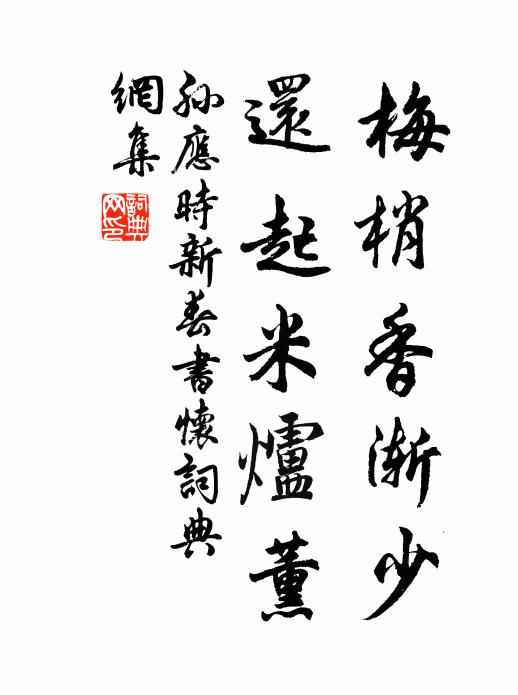 梅梢香漸少
還起米爐薰
孫應時新春書懷詞典
網集
詞典网印